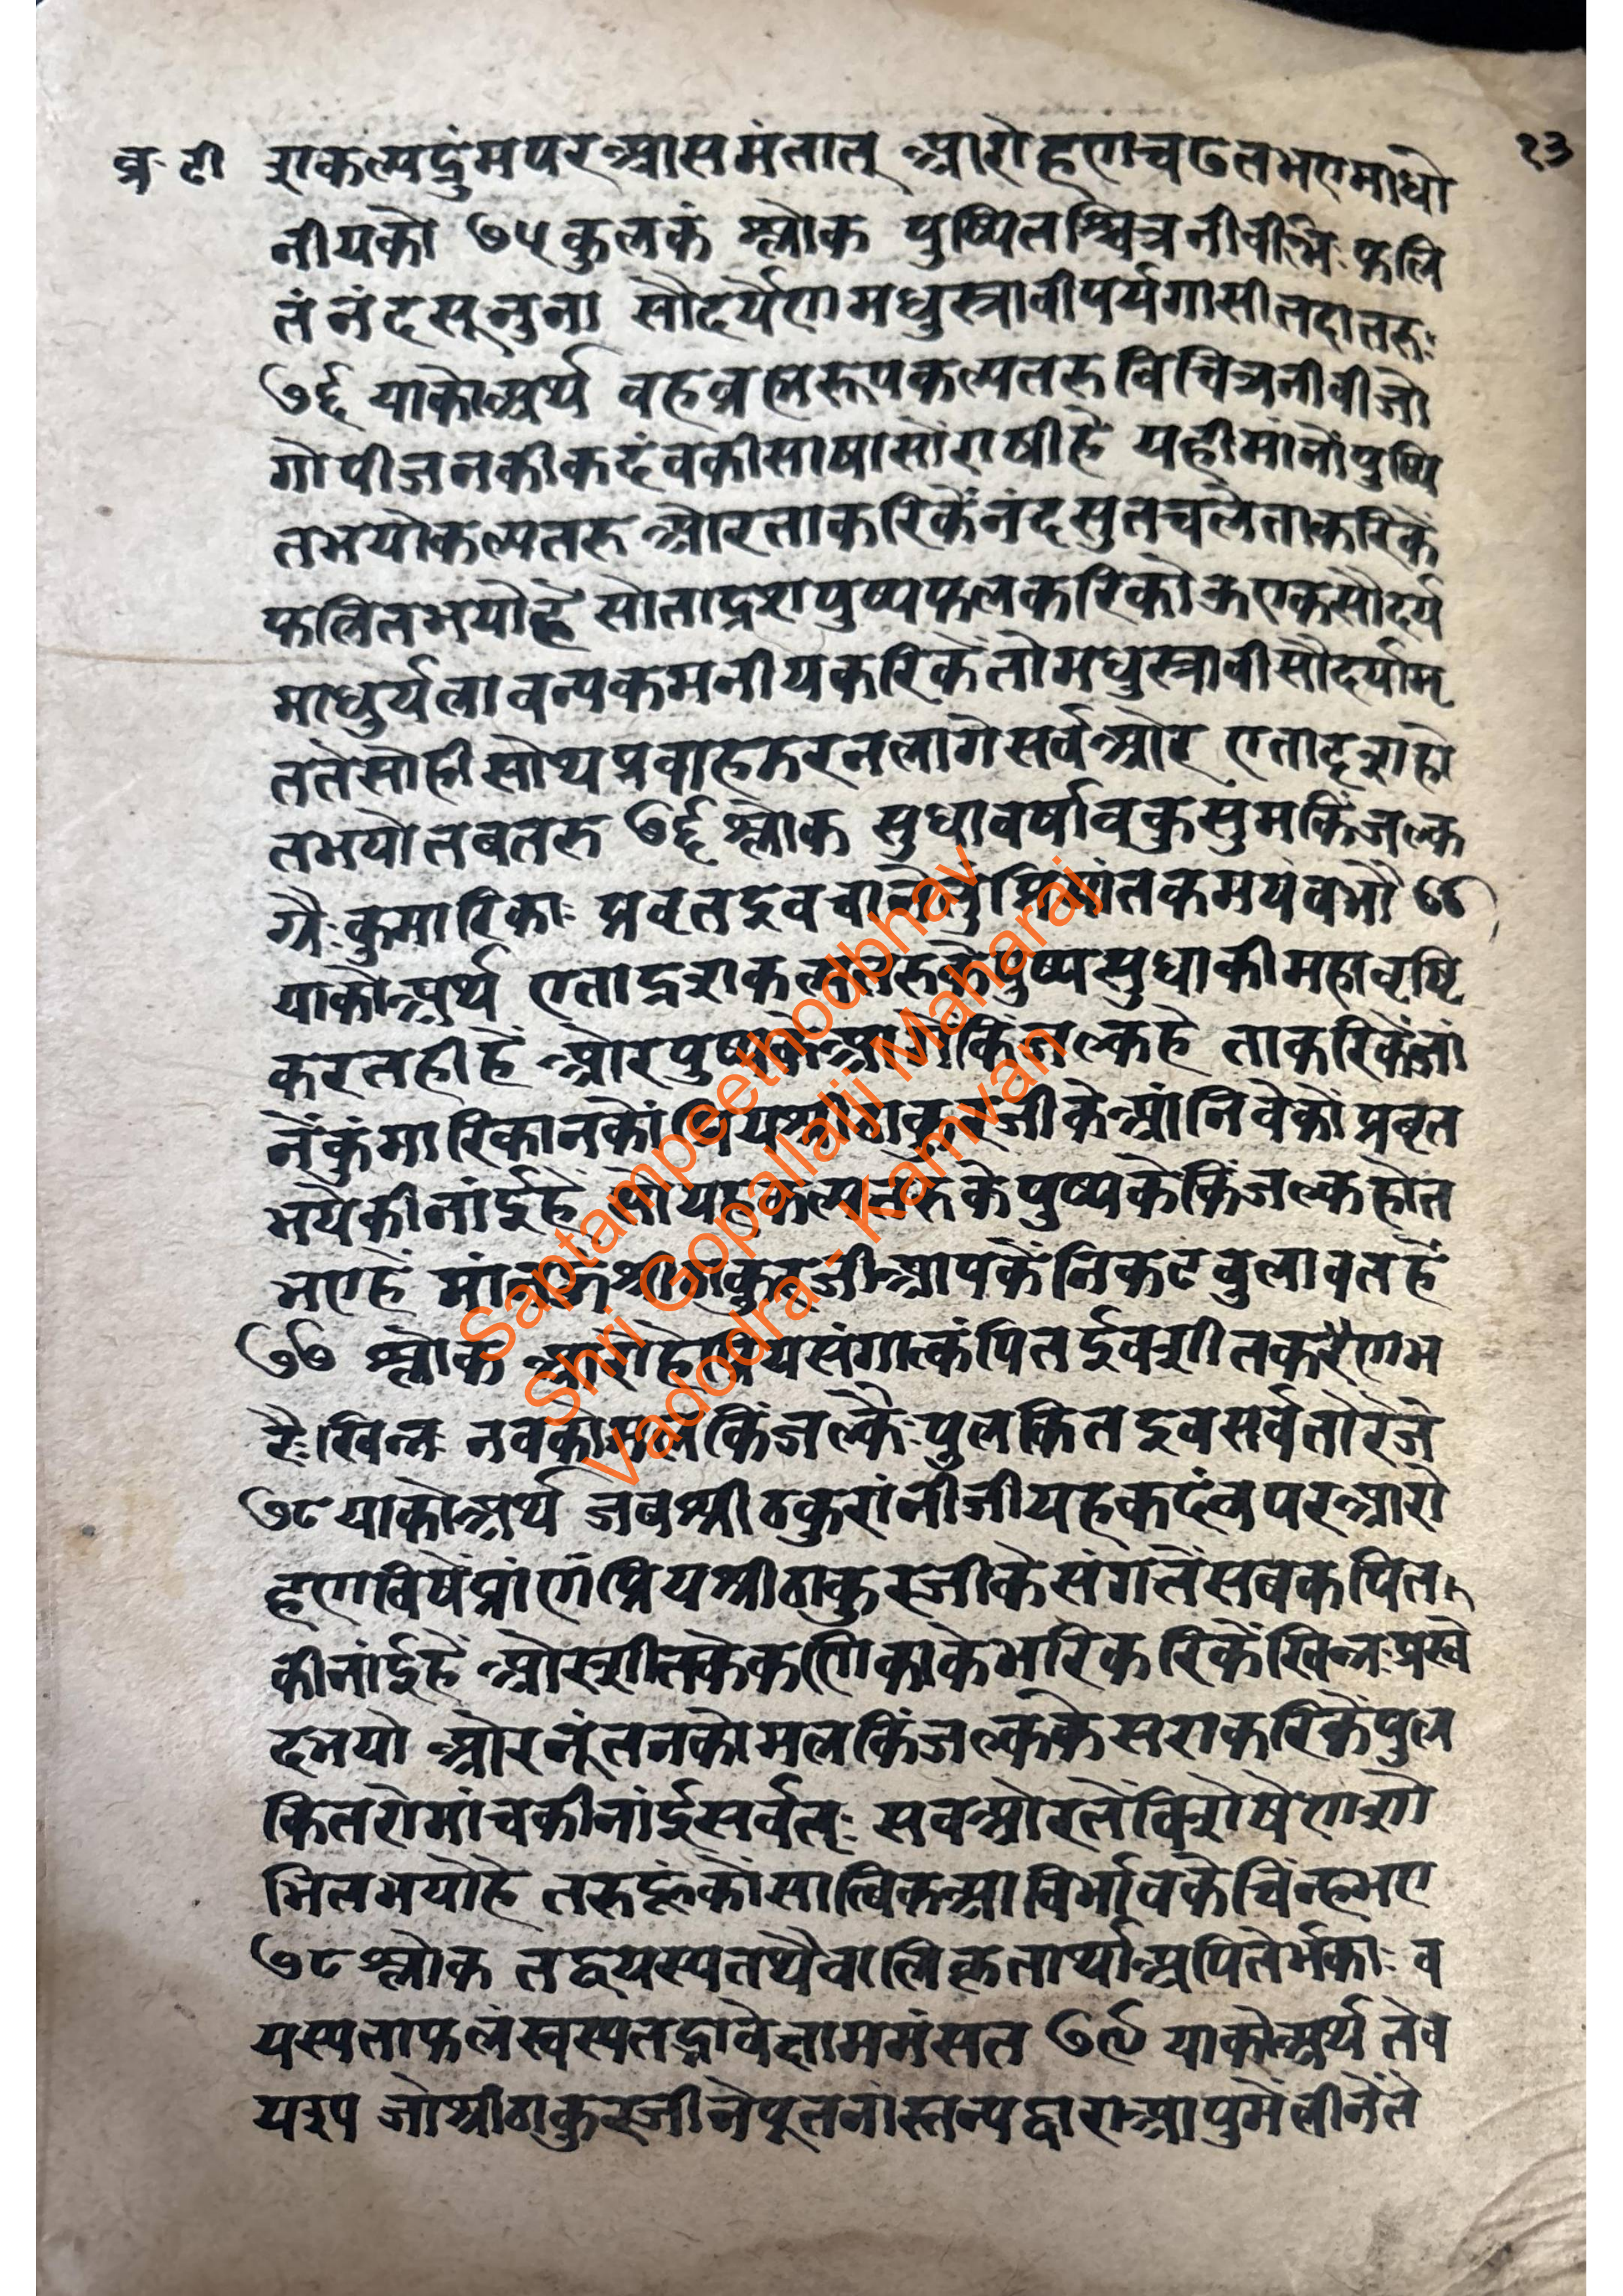 व्र॰ टी
१३
शकल्पद्रुंमपरआसमंतात् आरोहणचढतभएमाधो
नीयको ७५ कुलकं श्लोक पुष्पितश्चित्रनीवीभिः फलि
तं नंदसूनुना सौदर्येणमधुस्त्रावीपर्यगासीतदातरुः
७६ याकोअर्थ वहव्रजरूपकल्पतरु विचित्रनीवीजो
गोपीजनकीकदंवकीसाषासोंराषीहै यहीमांनोंपुष्पि
तभयोकल्पतरु औरताकरिकेंनंदसुतचलेताकरिकें
फलितभयोहै सोताद्रशपुष्पफलकरिकोऊएकसौदर्य
माधुर्यलावन्यकमनीयकरिकेंतोमधुस्त्रावीसौदर्यामृ
ततेसोहीसोथप्रवाहऊरनलागेसर्वओर एतादृशहो
तभयोतबतरु ७६ श्लोक सुधावर्षावकुसुमकिंजल्क
गैः कुमारिकाः प्रवृतइव
याकोअर्थ एताद्रशकल्पतरुकेपुष्पसुधाकीमहावृष्टि
करतहीहैं ओरपुष्पकेआगेकिंजल्कहै ताकरिकेंजां
नेंकुंमारिकानकोंप्रियश्रीठाकुरजीकेआंनिवेकोंप्रवृत
भयेकीनांईहैं सोयाहकल्पतरुकेपुष्पकेकिंजल्कहोत
भएहें मांनोंश्रीठाकुरजीआपकेंनिकटवुलावतहैं
७७ श्लोक आरोहेप्रियसंगात्कंपितईवशीतकरैणभ
रैः खिन्नः नवकोमलकिंजल्कैः पुलकितइवसर्वतोरेजे
७८ याकोअर्थ जवश्रीठकुरांनीजीयहकदंवपरआरो
हणविषेंप्रांणप्रियश्रीठाकुरजीकेसंगतेंसबकपित
कीनांईहैं ओरशीतकेकणिकाकेभरिकरिकेंखिन्नःप्रस्वे
दभयो ओरनूंतनकोमलकिंजल्ककेसराकरिकेंपुल
कितरोमांचकीनांईसर्वतः सवओरतेंविशेषेणशो
भितभयोहै तरुहूंकोंसात्विकआविर्भावकेचिंन्हभए
७८ श्लोक तद्वयस्यतथैवालिकृतार्थाअपितेर्भकाः व
यस्यताफलंस्वस्यतद्भावेनाममंसत ७९ याकोअर्थ तेव
यरूप जोश्रीठाकुरजीनेपूतनास्तन्यद्वाराआपुमेंलीनेंते
Saptampeethodbhav
Shri Gopallalji Maharaj
Vadodra - Kamvan